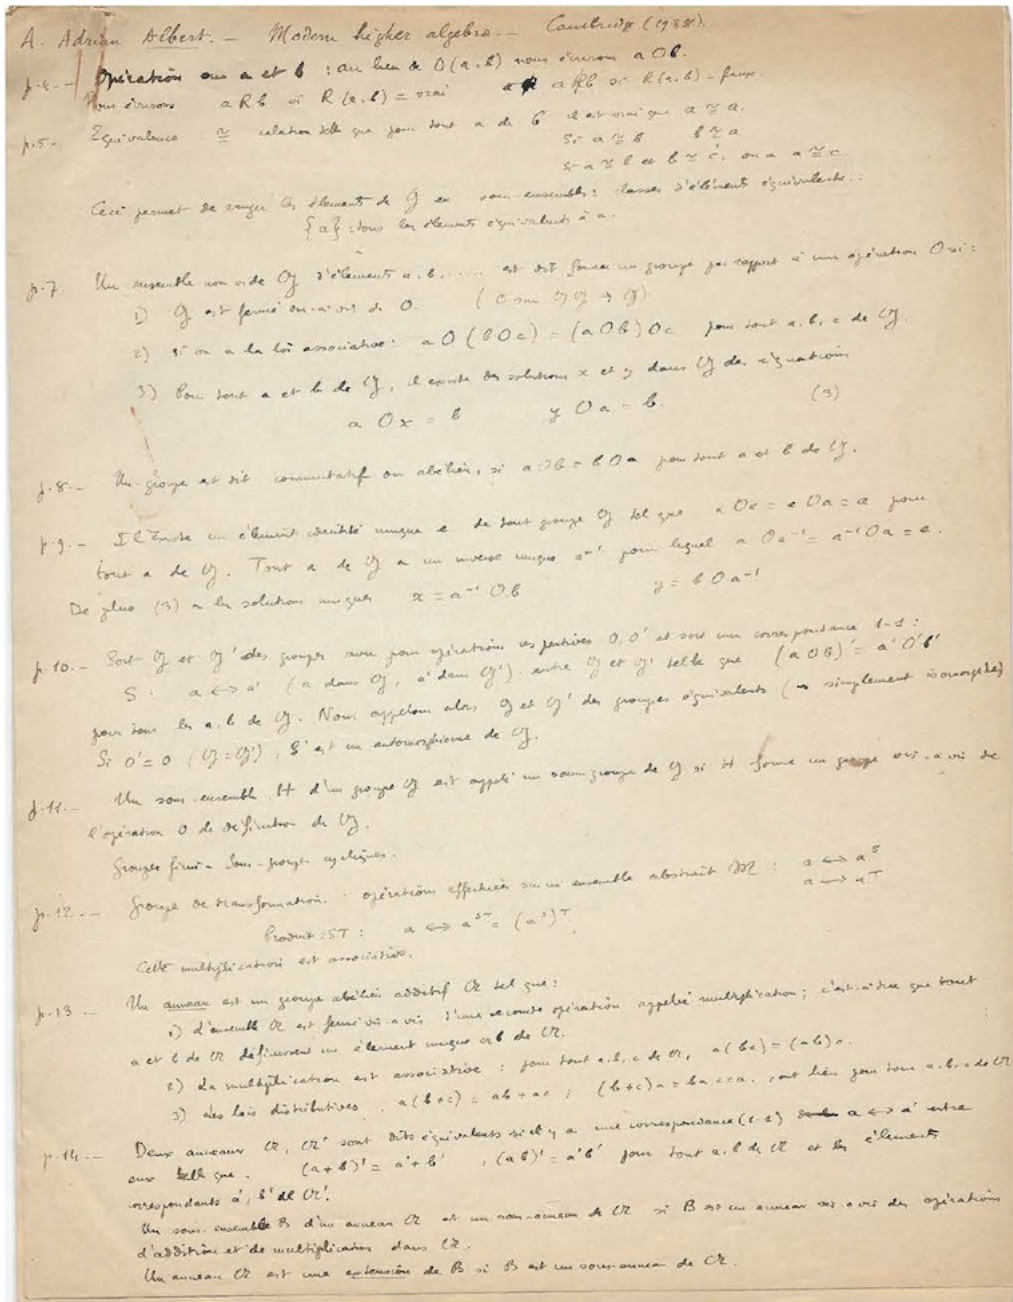 A. Adrian Albert. — Modern higher algebra. — Cambridge (1938).
p.4. — Opération sur a et b : au lieu de O(a,b) nous écrivons a O b.
Nous écrivons a R b si R(a,b) = vrai a R̸ b si R(a,b) = faux.
p.5. — Equivalence : ≅ relation telle que pour tout a de G il est vrai que a ≅ a.
Si a ≅ b b ≅ a
Si a ≅ b et b ≅ c, on a a ≅ c.
Ceci permet de ranger les éléments de G en sous-ensembles : classes d'éléments équivalents.
{a} : tous les éléments équivalents à a.
p.7 Un ensemble non vide G d'éléments a, b, ...... est dit former un groupe par rapport à une opération O si :
1) G est fermé vis-à-vis de O. (O sur G G → G)
2) Si on a la loi associative : a O (b O c) = (a O b) O c pour tout a, b, c de G.
3) Pour tout a et b de G, il existe des solutions x et y dans G des équations
a O x = b y O a = b. (3)
p.8. — Un groupe est dit commutatif ou abélien, si a O b = b O a pour tout a et b de G.
p.9. — Il existe un élément identité unique e de tout groupe G tel que a O e = e O a = a pour
tout a de G. Tout a de G a un inverse unique a⁻¹ pour lequel a O a⁻¹ = a⁻¹ O a = e.
De plus (3) a les solutions uniques x = a⁻¹ O b y = b O a⁻¹
p.10. — Soit G et G' des groupes avec pour opérations respectives O, O' et soit une correspondance 1-1 :
S . a ↔ a' (a dans G, a' dans G') entre G et G' telle que (a O b)' = a' O' b'
pour tous les a, b de G. Nous appelons alors G et G' des groupes équivalents (ou simplement isomorphes)
Si O' = O (G = G'), S est un automorphisme de G.
p.11. — Un sous-ensemble H d'un groupe G est appelé un sous-groupe de G si H forme un groupe vis-à-vis de
l'opération O de définition de G.
Groupes finis – Sous-groupes cycliques.
p.12. — Groupe de transformation. opérations effectuées sur un ensemble abstrait M : a ↔ aˢ
a ↔ aᵀ
Produit : ST : a ↔ aˢᵀ = (aˢ)ᵀ
Cette multiplication est associative.
p.13. — Un anneau est un groupe abélien additif A tel que :
1) L'ensemble A est fermé vis-à-vis d'une seconde opération appelée multiplication ; c'est-à-dire que tout
a et b de A définissent un élément unique ab de A.
2) La multiplication est associative : pour tout a, b, c de A, a(bc) = (ab)c.
3) Les lois distributives . a(b+c) = ab + ac ; (b+c)a = ba + ca. ont lieu pour tous a, b, c de A
p.14. — Deux anneaux A, A' sont dits équivalents si il y a une correspondance (1-1) a ↔ a' entre
eux telle que. (a+b)' = a' + b' , (ab)' = a'b' pour tout a, b de A et les éléments
correspondants a', b' de A'.
Un sous-ensemble B d'un anneau A est un sous-anneau de A si B est un anneau vis-à-vis des opérations
d'addition et de multiplication dans A.
Un anneau A est une extension de B si B est un sous-anneau de A.